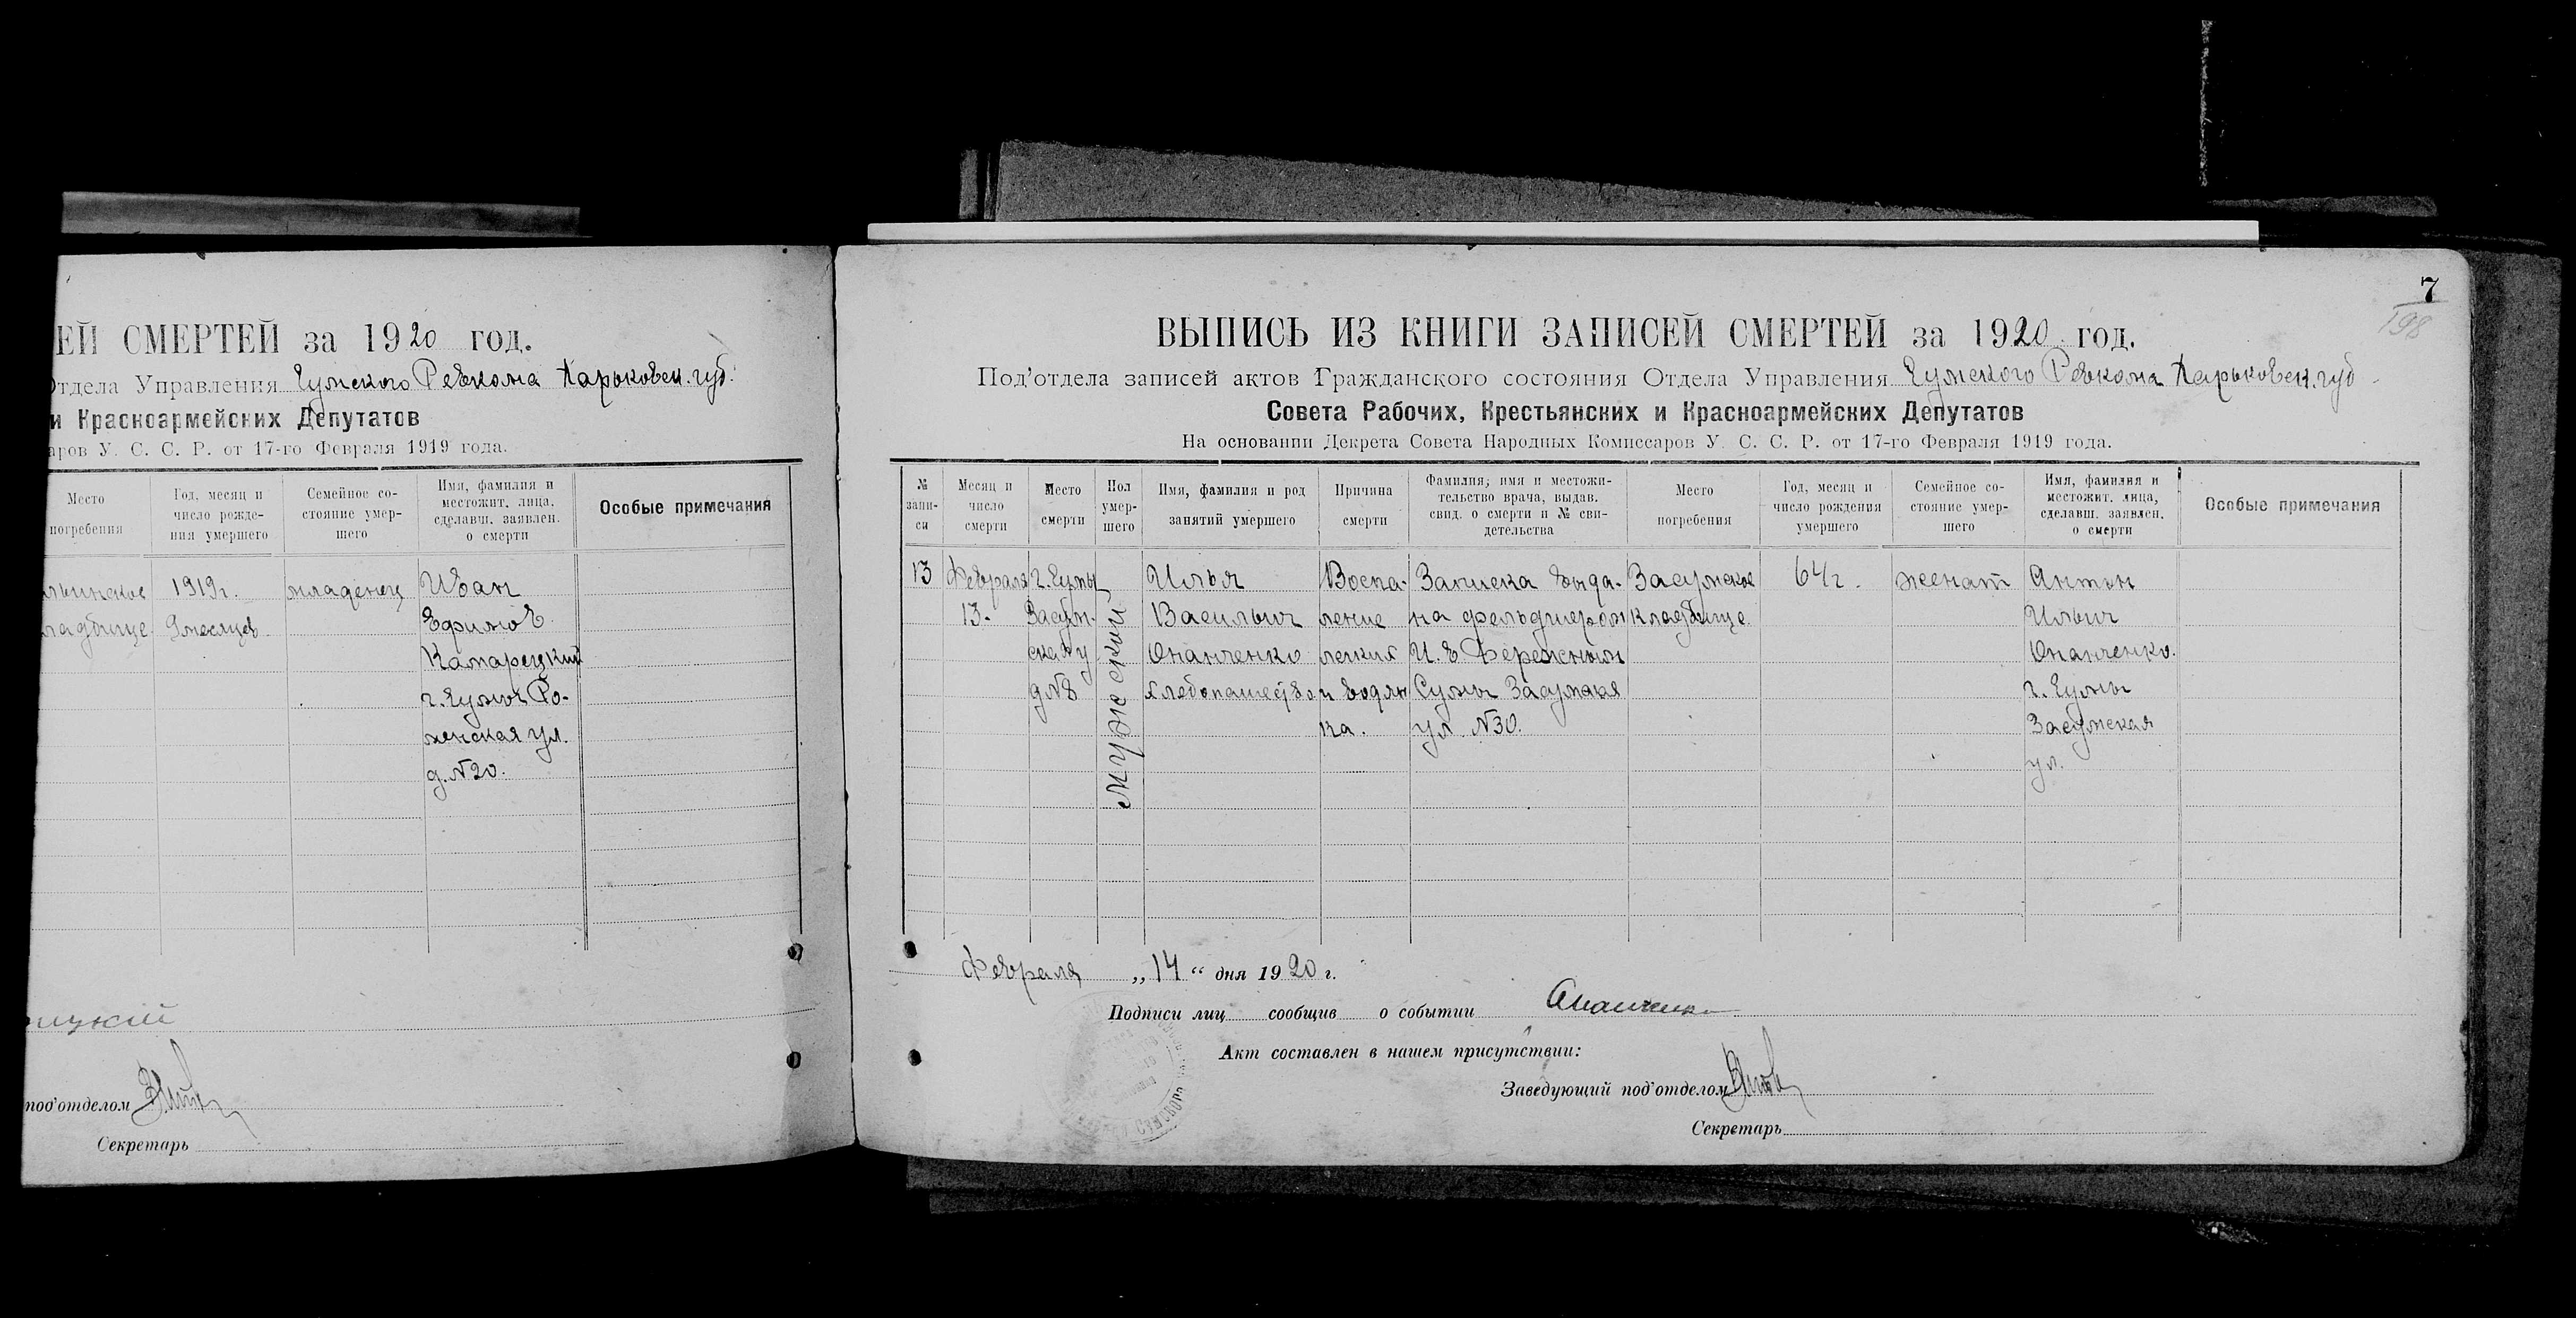 ЕЙ СМЕРТЕЙ за 1920 год.
Отдела Управления Сумского Ревкома Харьковск. губ.
и Красноармейских Депутатов
аров У. С. С. Р. от 17-го Февраля 1919 года.
Место погребения
Год, месяц и число рожде- ния умершего
Семейное со- стояние умер- шего
Имя, фамилия и местожит. лица, сделавш. заявлен. о смерти
Особые примечания
1919г. младенец Иван
ладбище 9 месяцев Ефимов
Камарецкий
г. Сумы Ро-
менская ул.
д. №20.
рицкий
под'отделом
Секретарь
7
198
ВЫПИСЬ ИЗ КНИГИ ЗАПИСЕЙ СМЕРТЕЙ за 1920 год.
Под'отдела записей актов Гражданского состояния Отдела Управления Сумского Ревкома Харьковск. губ.
Совета Рабочих, Крестьянских и Красноармейских Депутатов
На основании Декрета Совета Народных Комиссаров У. С. С. Р. от 17-го Февраля 1919 года.
№ запи- си
Месяц и число смерти
Место смерти
Пол умер- шего
Имя, фамилия и род занятий умершего
Причина смерти
Фамилия, имя и местожи- тельство врача, выдав. свид. о смерти и № сви- детельства
Место погребения
Год, месяц и число рождения умершего
Семейное со- стояние умер- шего
Имя, фамилия и местожит. лица, сделавш. заявлен. о смерти
Особые примечания
13 Февраля г. Сумы Илья Воспа- Записка выда- Засумское 64 г. женат Антон
13. Засум- Васильич ление на фельдшером кладбище. Ильич
ская у Онанченко легких И. Е. Онанченко.
д №8 хлебопашество и водян Сумы Засумская г. Сумы
ка. ул. №30. Засумская
ул.
мужский
Февраля „14“ дня 1920 г.
Подписи лиц сообщив о событии Ананченко
Акт составлен в нашем присутствии:
Заведующий под'отделом
Секретарь